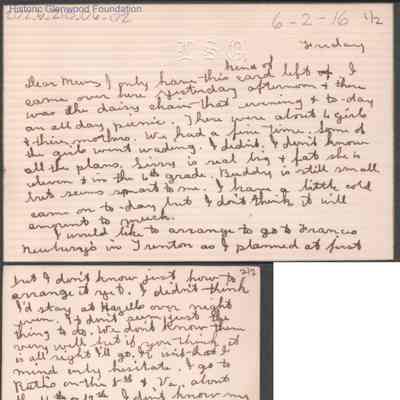 Historic Glenwood Foundation
6-2-16 1/2
Friday
Dear Mums I only have this kind of card left & I
came over here yesterday afternoon & there
was the daisy chain that evening & to-day
an all day picnic. There were about 6 girls
& their mothers. We had a fine time. Some of
the girls went wading. I didn't. I don't know
all the plans. Sissy is real big & fat she is
eleven & in the 6th grade. Buddy is still small
but seems smart to me. I have a little cold
came on to-day but I don't think it will
amount to much.
I would like to arrange to go to Frances
Newburg's in Trenton as I planned at first
2/2
but I don't know just how to
arrange it yet. I didn't think
I'd stay at Hazels over night
even. It don't seem just the
thing to do. We don't know them
very well but if you think it
is all right I'll go. It isn't that I
mind only hesitate. I go to
Ruths on the 8th & Va. about
the 11th or 12th. I don't know my